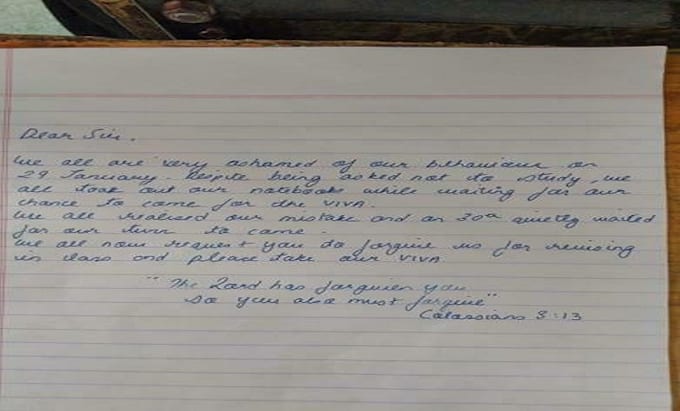 Dear Sir.
We all are very ashamed of our behaviour on
29 January. Despite being asked not to study, we
all took out our notebooks while waiting for our
chance to come for the VIVA.
We all realised our mistake and on 30th quietly waited
for our turn to come.
We all now request you to forgive us for revising
in class and please take our VIVA
"The Lord has forgiven you
so you also must forgive"
Colossians 3:13